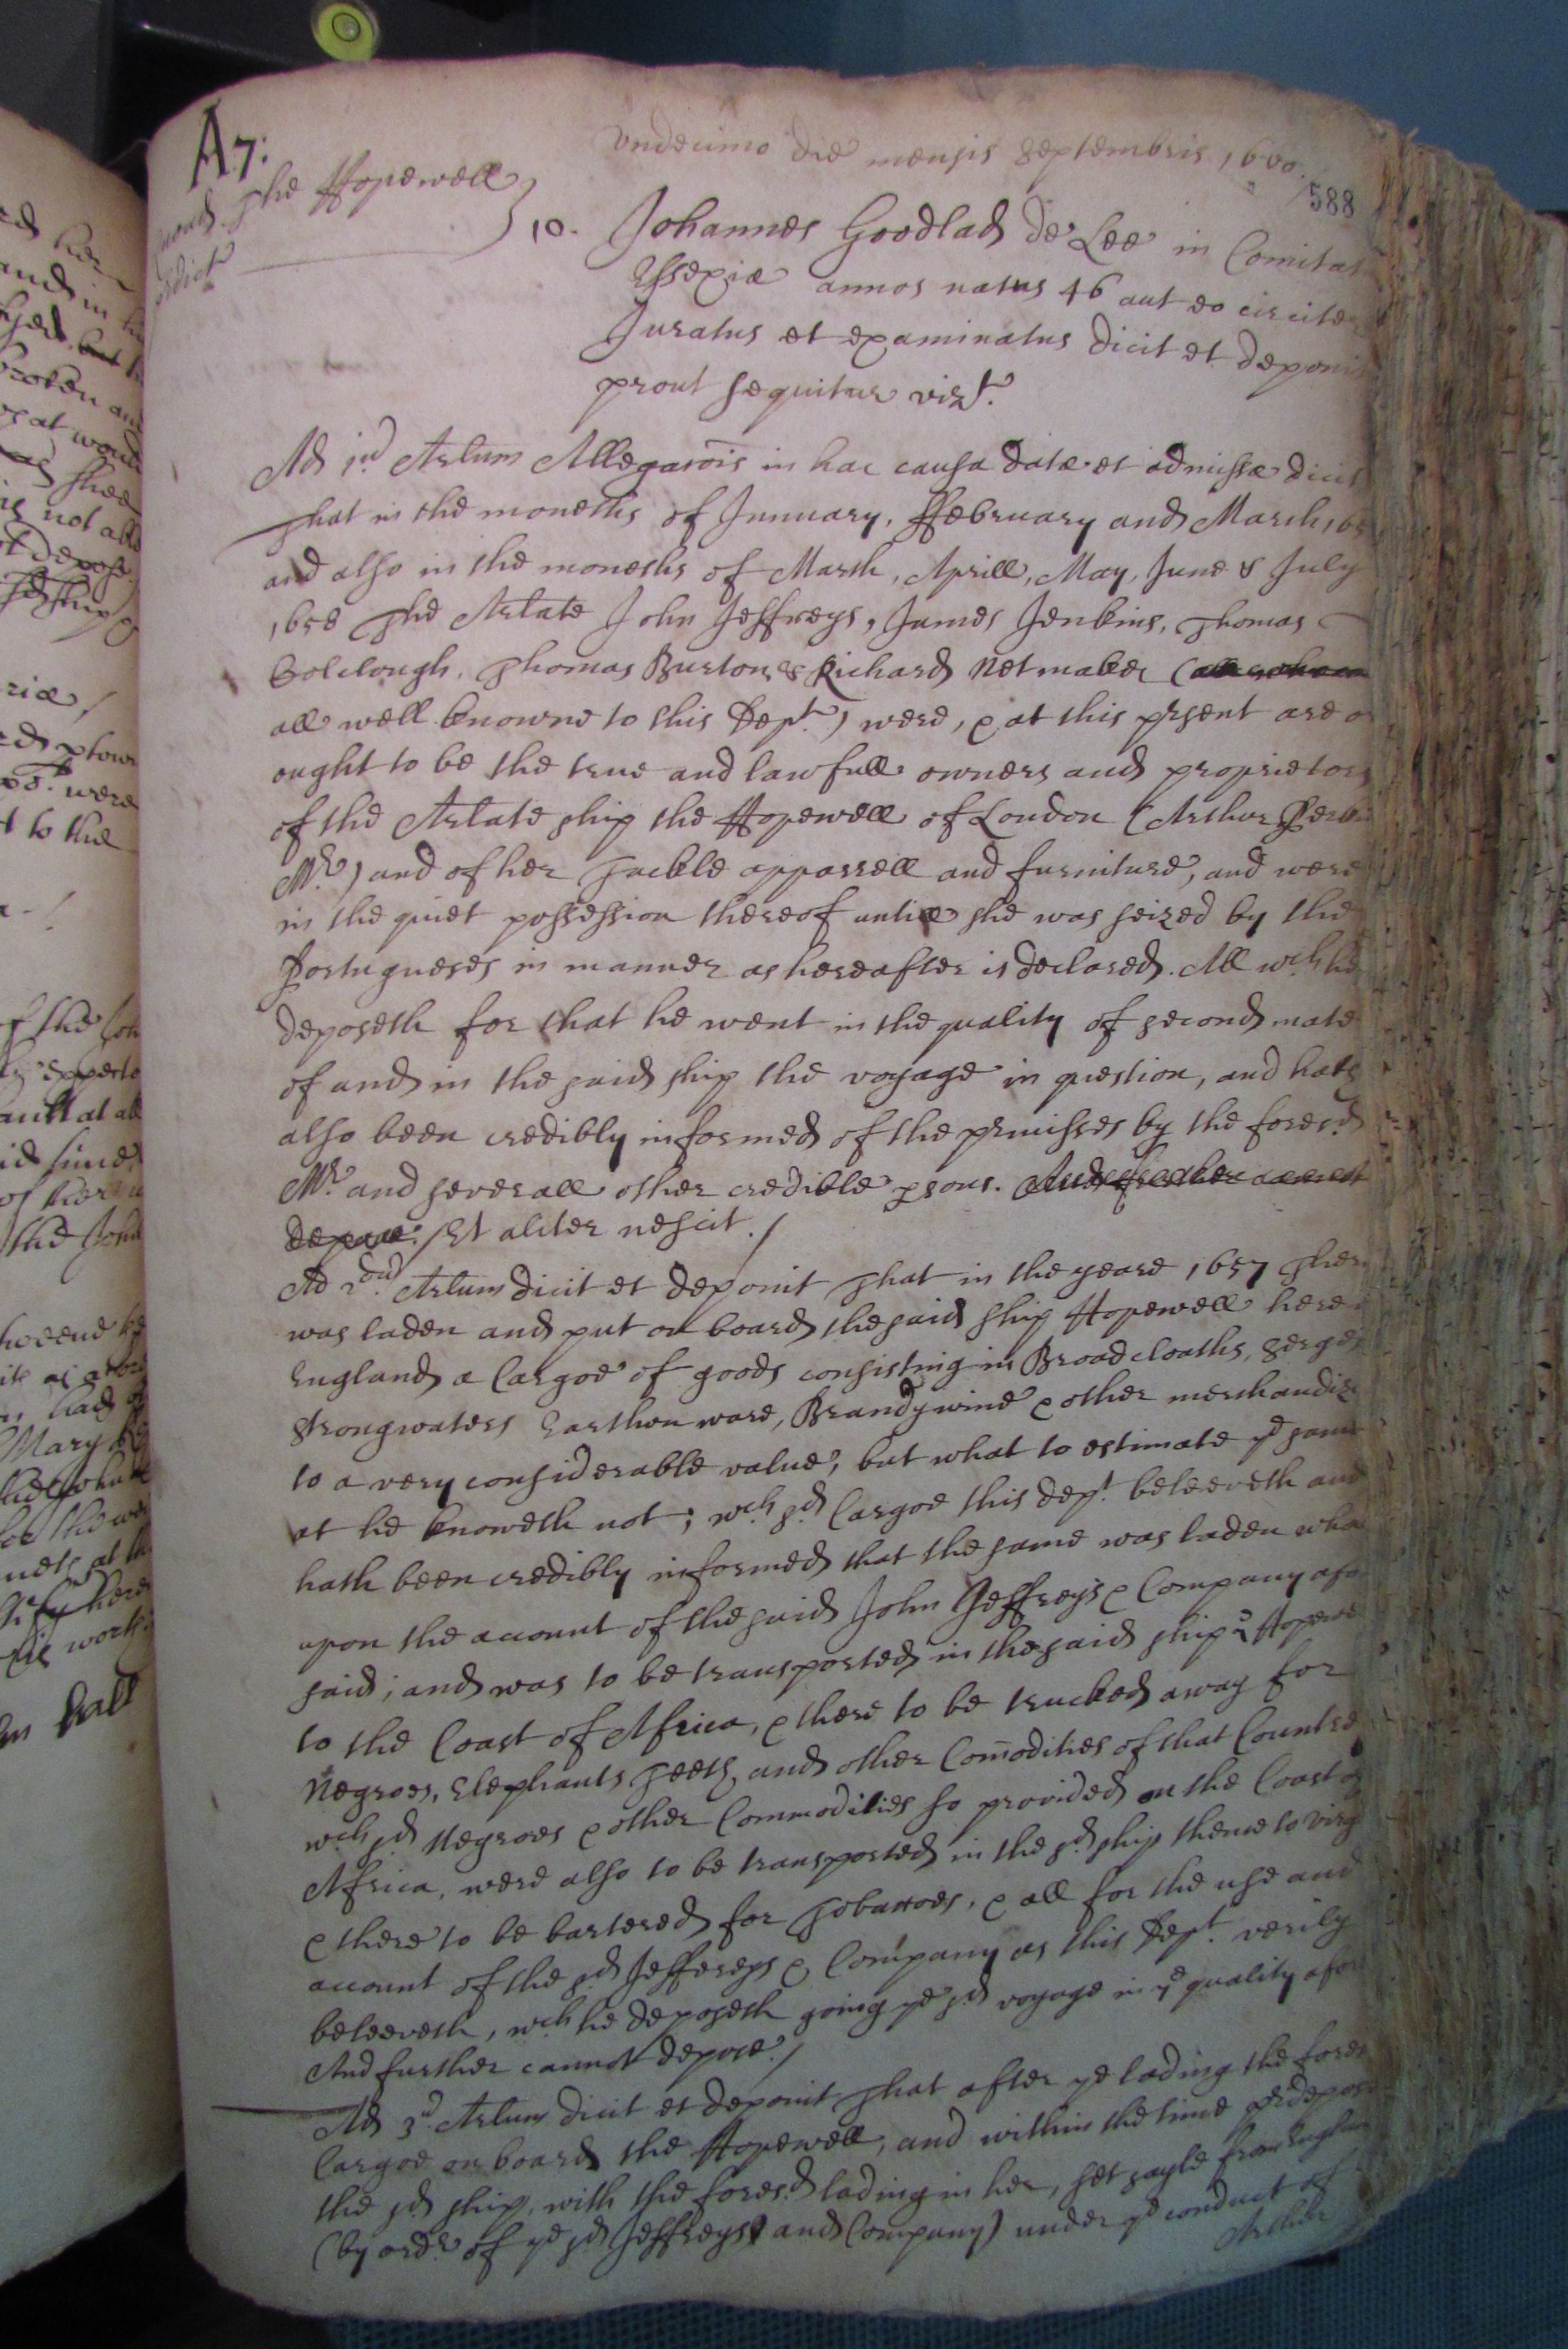 A7:
Undecimo die mensis Septembris 1660.
588
The Hopewell
10.
Johannes Goodlad de Lee in Comitat
Essexiæ annos natus 46 aut eo circiter
Juratus et examinatus dicit et deponit
prout sequitur vizt.
Ad 1um Arlum Allegaōis in hac causa datæ et admissæ dicit
That in the moneths of January, ffebruary and March, 165
and also in the moneths of March, Aprill, May, June & July
1658 The Arlate John Jeffreys, James Jenkins, Thomas
Colclough, Thomas Burton & Richard Netmaker (
all well knowne to this Dept) were, & at this prsent are or
ought to be the true and lawfull owners and proprietors
of the Arlate ship the Hopewell of London (Arthur
Mr) and of her Tackle apparrell and furniture, and were
in the quiet possession thereof untill she was seized by the
Portugueses in manner as hereafter is declared. All wch he
deposeth for that he went in the quality of second mate
of and in the said ship the voyage in question, and hath
also been credibly informed of the prmisses by the foresd
Mr. and severall other credible psons. And further cannot
depose. / Et aliter nescit. /
Ad 2dum Arlum dicit et deponit That in the yeare 1657 There
was laden and put on board the said ship Hopewell here
England a Cargoe of goods consisting in Broad cloaths, serges
strongwaters Earthen ware, Brandywine & other merchandize
to a very considerable value, but what to estimate ye same
at he knoweth not; wch sd Cargoe this dept beleeveth and
hath been credibly informed that the same was laden
upon the account of the said John Jeffreys & Company afo
said; and was to be transported in the said ship Hopewe
to the Coast of Africa, & there to be trucked away for
Negroes, Elephants Teeth, and other Com̄odities of that Countre
wch sd Negroes & other Commodities so provided on the Coast of
Africa, were also to be transported in the sd ship thence to Virg
& there to be bartered for Tobaccoes, & all for the use and
account of the sd Jeffereys & Company as this Dept. verily
beleeveth, wch he deposeth going ye sd voyage in ye quality afor
And further cannot depose. /
Ad 3um Arlum dicit et deponit That after ye lading the fores
Cargoe on board the Hopewell, and within the time
the sd ship, with the foresd lading in her, set sayle from Englan
(by ordr of ye sd Jeffreys and Company) under ye conduct of
Arthur